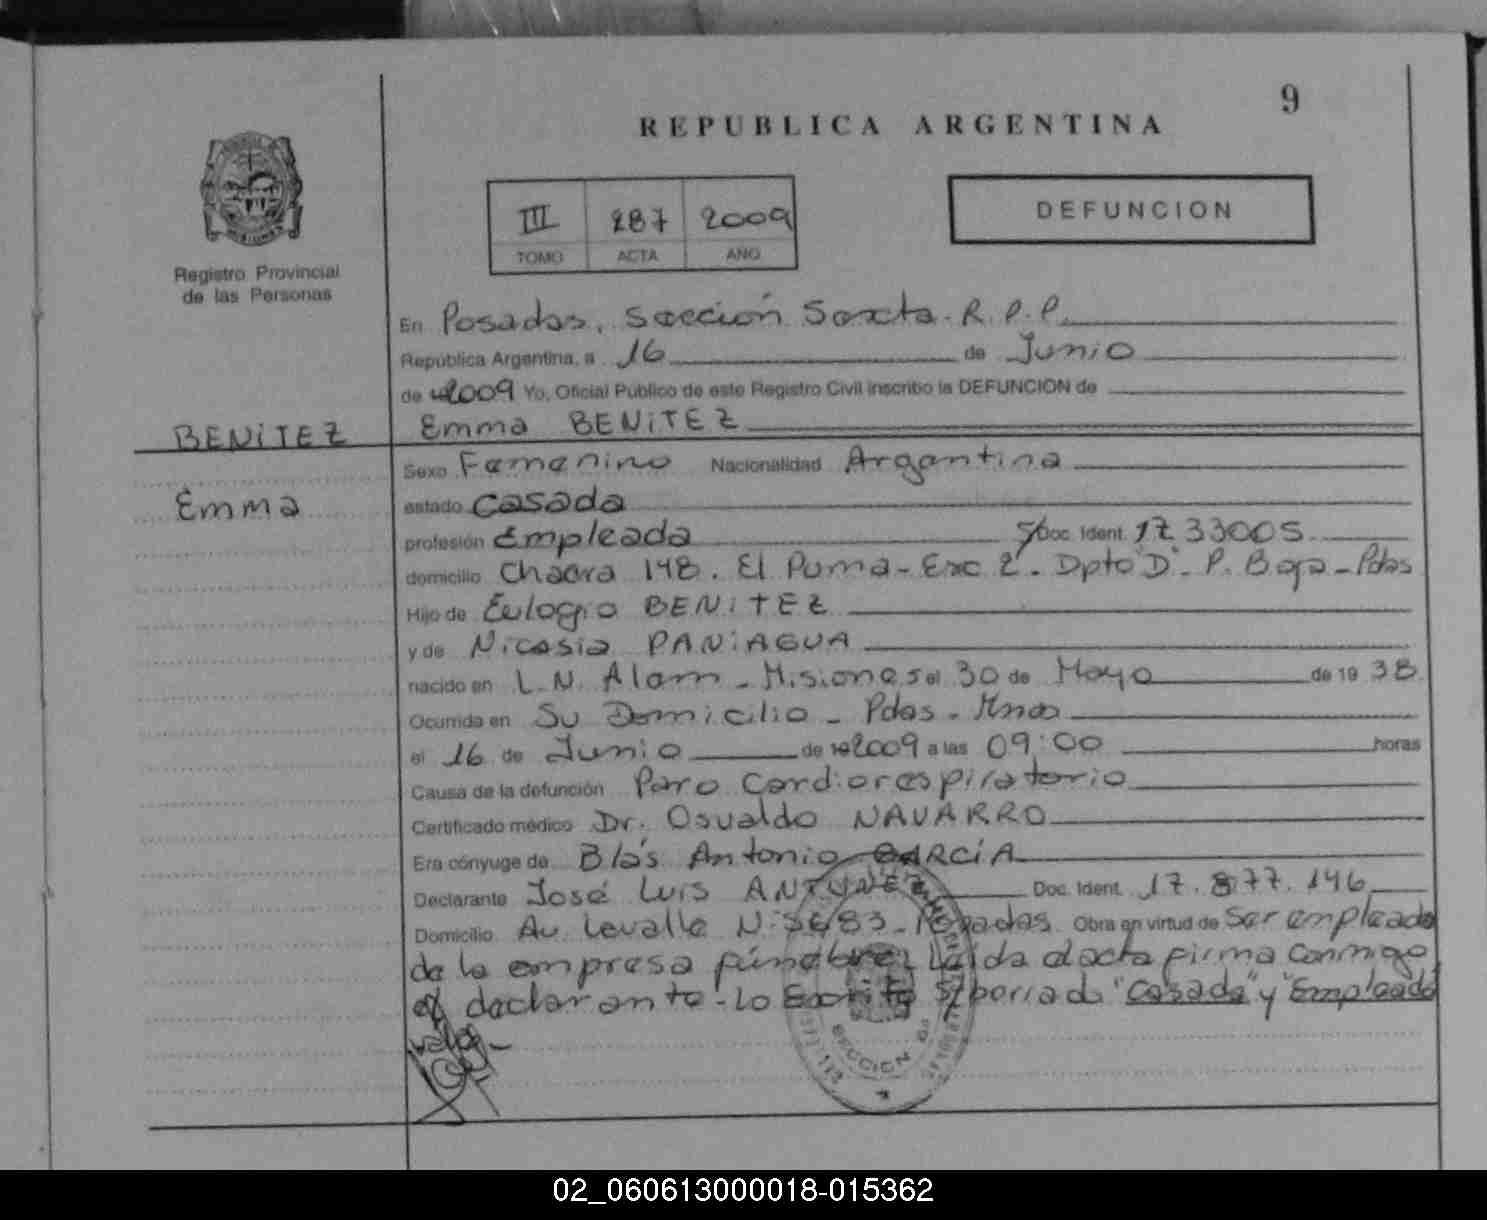 9
REPUBLICA ARGENTINA
III 287 2009
TOMO ACTA AÑO
DEFUNCION
MISIONES
Registro Provincial
de las Personas
En Posadas, Sección Sexta - R.P.P.
República Argentina, a 16 de Junio
de 2009 Yo, Oficial Público de este Registro Civil inscribo la DEFUNCION de
BENiTEZ Emma BENiTEZ
Sexo Femenino Nacionalidad Argentina
Emma estado Casada
profesión Empleada S/Doc. Ident. 17 33005
domicilio Chacra 148. El Puma - Esc 2 - Dpto "D" - P. Baja - Pdas
Hijo de Eulogio BENiTEZ
y de Nicasia PANiAGUA
nacido en L.N. Alem - Misiones el 30 de Mayo de 19 38
Ocurrida en Su Domicilio - Pdas - Mnes
el 16 de Junio de 2009 a las 09:00 horas
Causa de la defunción Paro Cardiorespiratorio
Certificado médico Dr. Osvaldo NAVARRO
Era cónyuge de Blás Antonio GARCiA
Declarante José Luis ANTUNEZ Doc. Ident. 17.877.146
Domicilio Av Lavalle Nº 3683 - Posadas Obra en virtud de Ser empleado
de la empresa fúnebre Leída el acta firma conmigo
el declarante - Lo Escrito s/borrado "Casada" y "Empleada"
vale -
SECCION 6ª
02_060613000018-015362